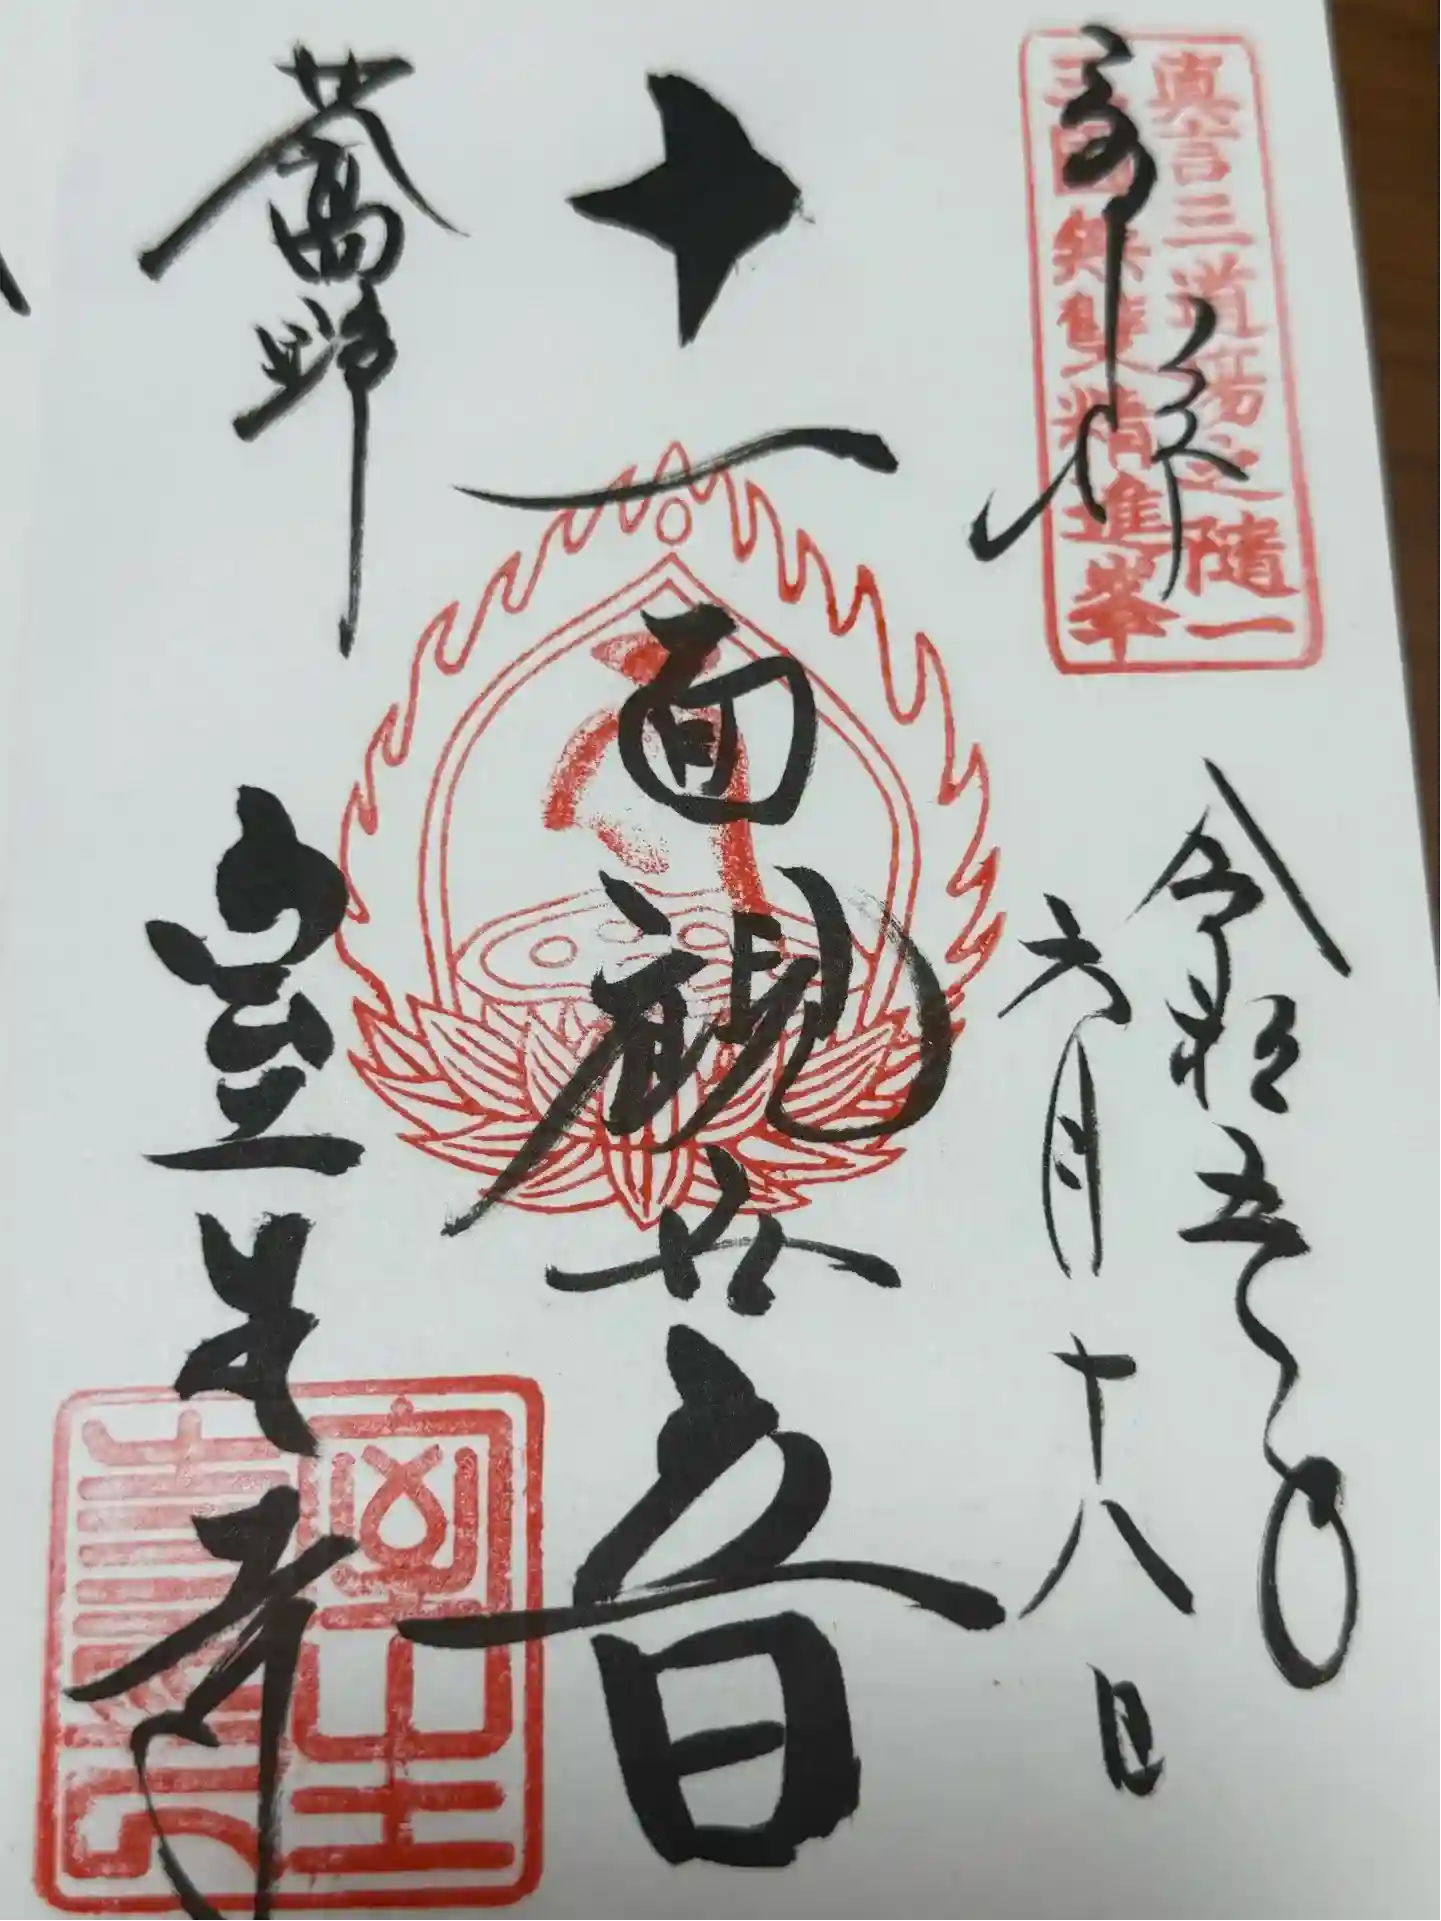 奉拝
真言三道場之隨一
三国無雙精進峯
令和五年
六月十八日
十一面観世音
女人高野
室生寺